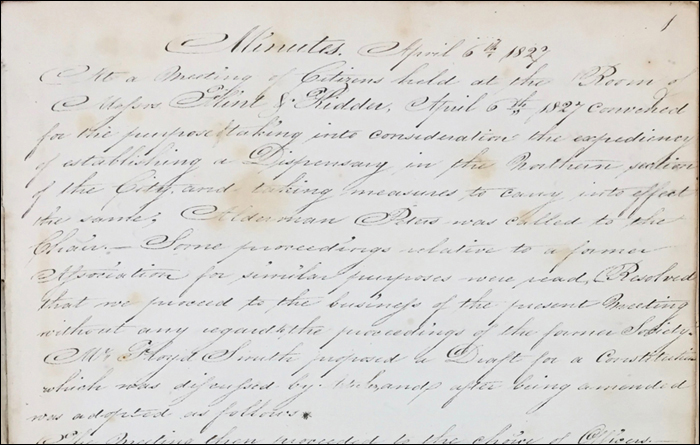 1
Minutes. April 6th 1827
At a Meeting of Citizens held at the Room of
Messrs & Ridder, April 6th, 1827 convened
for the purpose taking into consideration the expediency
of establishing a Dispensary in the Northern section
of the City and taking measures to carry into effect
the same; Alderman Peters was called to the
Chair.— Some proceedings relative to a former
Association for similar purposes were read, Resolved
that we proceed to the business of the present Meeting
without any regard to the proceedings of the former Society.
Mr. Floyd Smith proposed a Draft for a Constitution
which was discussed by and after being amended
was adopted as follows.
The Meeting then proceeded to the choice of Officers—